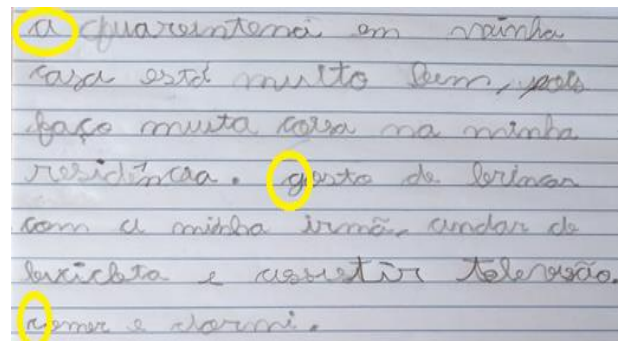 a quarentena em minha
casa está muito bem, pois
faço muita coisa na minha
residência. gosto de brincar
com a minha irmã, andar de
bicicleta e assistir televisão.
comer e dormi.